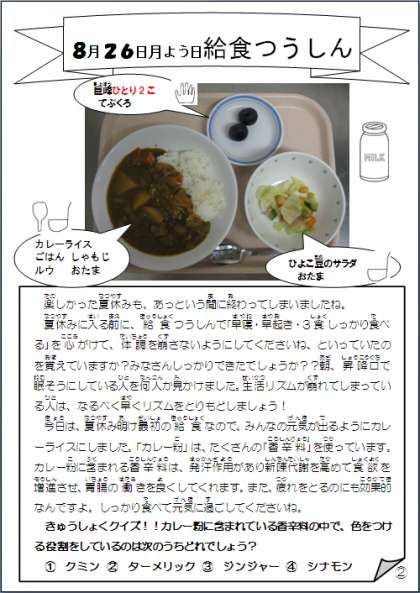 8月26日月よう日給食つうしん
巨峰ひとり2こ
てぶくろ
MILK
カレーライス
ごはん しゃもじ
ルウ おたま
ひよこ豆のサラダ
おたま
楽しかった夏休みも、あっという間に終わってしまいましたね。
夏休みに入る前に、給食つうしんで「早寝・早起き・3食しっかり食べ
る」を心がけて、体調を崩さないようにしてくださいね、といっていたの
を覚えていますか?みなさんしっかりできたでしょうか??朝、昇降口で
眠そうにしている人を何人か見かけました。生活リズムが崩れてしまってい
る人は、なるべく早くリズムをとりもどしましょう!
今日は、夏休み明け最初の給食なので、みんなの元気が出るようにカレ
ーライスにしました。「カレー粉」は、たくさんの「香辛料」を使っています。
カレー粉に含まれる香辛料は、発汗作用があり新陳代謝を高めて食欲を
増進させ、胃腸の働きを良くしてくれます。また、疲れをとるのにも効果的
なんですよ。しっかり食べて元気に過ごしてくださいね。
きゅうしょくクイズ!!カレー粉に含まれている香辛料の中で、色をつけ
る役割をしているのは次のうちどれでしょう?
① クミン ② ターメリック ③ ジンジャー ④ シナモン
②